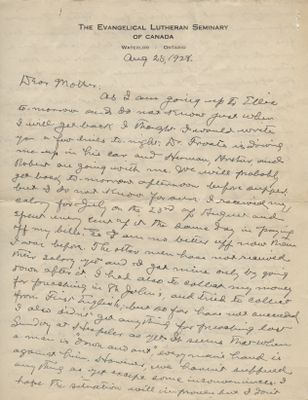 THE EVANGELICAL LUTHERAN SEMINARY
OF CANADA
WATERLOO ONTARIO
Aug 25, 1928.
Dear Mother:
As I am going up to Ellis
tomorrow and do not know just when
I will get back I thought I would write
you a few lines to night. Dr. Froats is driving
me up in his car and Herman, and
Robert are going with me. We will probably
get back tomorrow afternoon before supper,
but I do not know for sure. I received my
salary for July, on the 23rd of August and
spent every cent of it the same day in paying
off my bills. So I am no better off now than
I was before. The other men have not received
their salary yet and I got mine only by going
down after it. I had also to collect my money
for preaching in St. John's, and tried to collect
from First English, but so far have not succeeded.
I also didn't get anything for preaching last
Sunday at Hespeler as yet. It seems that when
a man is down and out, every man's hand is
against him. However, we haven't suffered
anything as yet except some inconveniences. I
hope the situation will improve but I don't